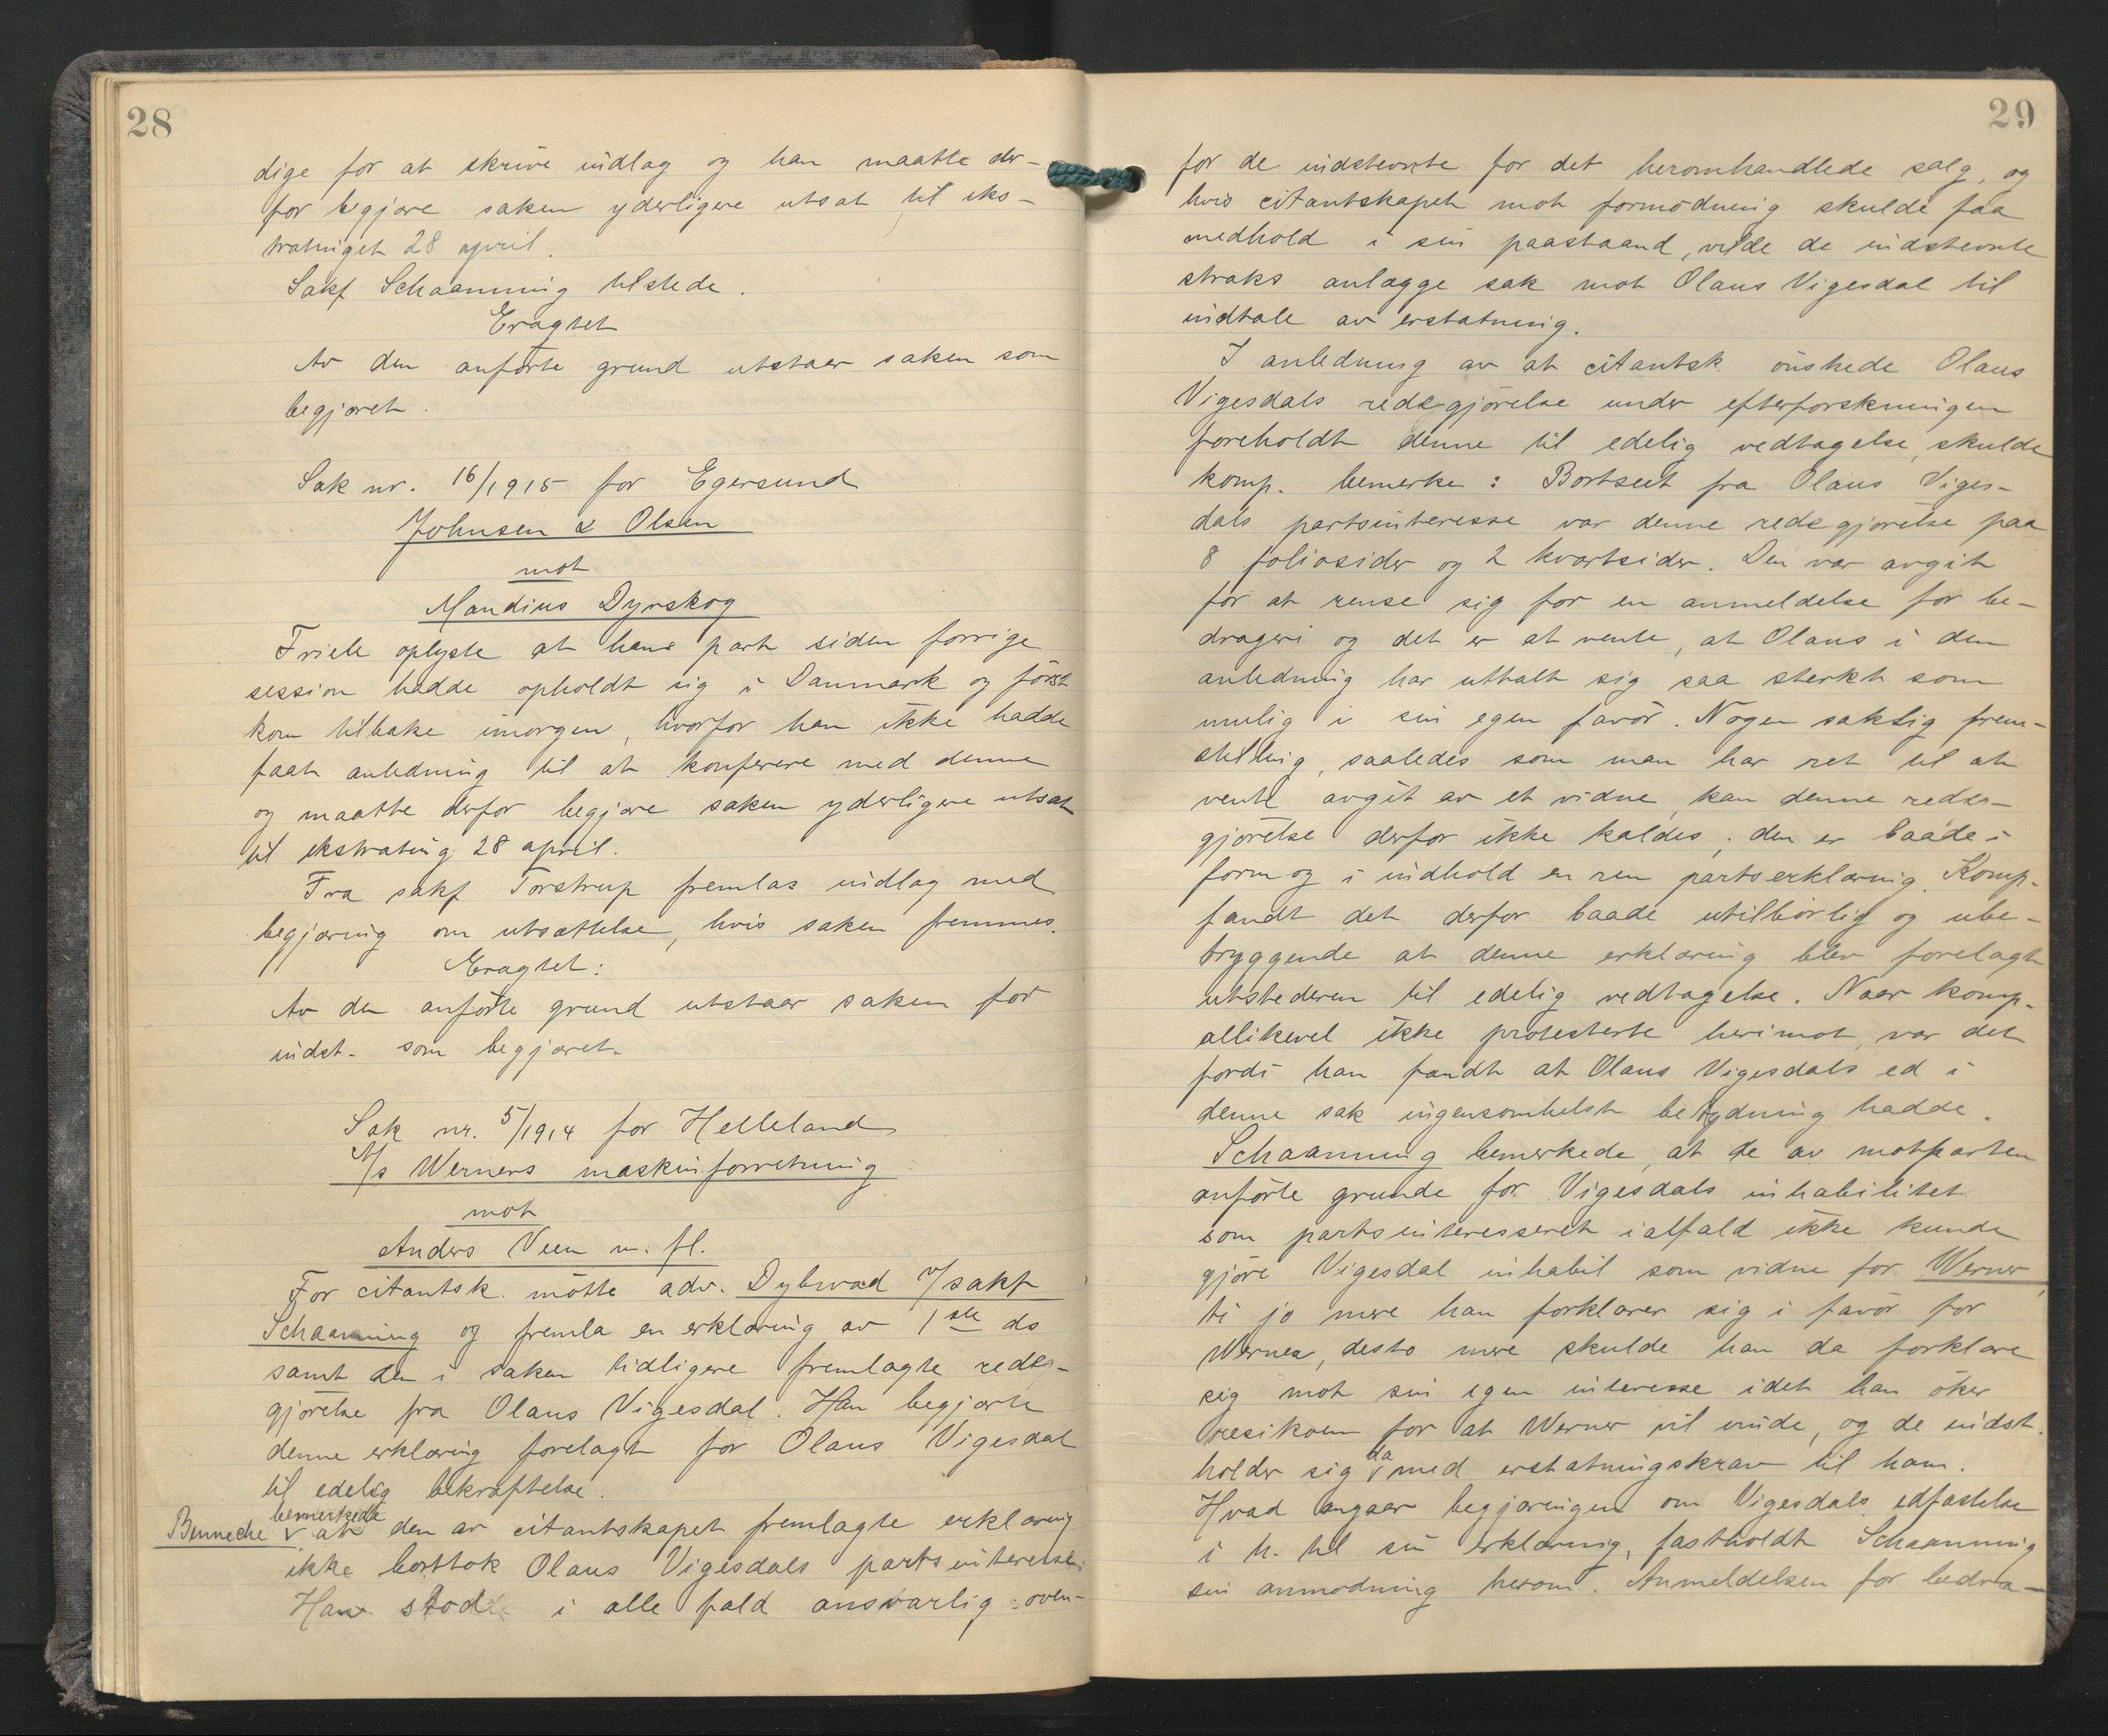 28
dige for at skrive indlæg og han maatte der-
for begjære saken yderligere utsat til eks-
tratinget 28 april.
Sakf Schaanning tilstede.
Eragtet
Av den anførte grund utstaar saken som
begjæret.
Sak nr. 16/1915 for Egersund
Johnsen & Olsen
mot
Mandius Dyrskog
Friele oplyste at hans part siden forrige
session hadde opholdt sig i Danmark og først
kom tilbake imorgen, hvorfor han ikke hadde
faat anledning til at konferere med denne
og maatte derfor begjære saken yderligere utsat
til ekstrating 28 april.
Fra sakf Torstrup fremlas indlæg med
begjæring om utsættelse, hvis saken fremmes.
Eragtet:
Av den anførte grund utstaar saken for
indst. som begjæret.
Sak nr. 5/1914 for Helleland
A/s Werners maskinforretning
mot
Anders Veen m. fl.
For citantsk. møtte adv. Dybwad v/sakf
Schaanning og fremla en erklæring av 1ste ds
samt den i saken tidligere fremlagte redeg-
gjørelse fra Olaus Vigesdal. Han begjærte
denne erklæring forelagt for Olaus Vigesdal
til edelig bekræftelse.
Benneche bemerkede at den av citantskapet fremlagte erklæring
ikke borttok Olaus Vigesdals partsinteresse.
Han stod i alle fald ansvarlig oven-
29
for de indstevnte for det heromhandlede salg, og
hvis citantskapet mot formodning skulde faa
medhold i sin paastaand, vilde de indstevnte
straks anlægge sak mot Olaus Vigesdal til
indtale av erstatning.
I anledning av at citantsk. ønskede Olaus
Vigesdals redegjørelse under efterforskningen
foreholdt denne til edelig vedtagelse, skulde
komp. bemerke: Bortseet fra Olaus Viges-
dals partsinteresse var denne redegjørelse paa
8 foliosider og 2 kvartsider. Den var avgit
for at rense sig for en anmeldelse for be-
drageri og det er at vente, at Olaus i den
anledning har uttalt sig saa sterkt som
mulig i sin egen favør. Nogen saklig frem-
stilling, saaledes som man har ret til at
vente avgit av et vidne, kan denne rede-
gjørelse derfor ikke kaldes; den er baade i
form og i indhold en ren partserklæring. Komp.
fandt det derfor baade utilbørlig og ube-
tryggende at denne erklæring blev forelagt
utstederen til edelig vedtagelse. Naar komp.
allikevel ikke protesterte herimot, var det
fordi han fandt at Olaus Vigesdals ed i
denne sak ingensomhelst betydning hadde.
Schaanning bemerkede, at de av motparten
anførte grunde for Vigesdals inhabilitet
som partsinteresseret ialfald ikke kunde
gjøre Vigesdal inhabil som vidne for Werner,
ti jo mere han forklarer sig i favør for
Werner, desto mere skulde han da forklare
sig mot sin egen interesse idet han øker
resikoen for at Werner vil vinde, og de indst.
holder sig da med erstatningskrav til ham.
Hvad angaar begjæringen om Vigesdals edfæstelse
i h. til sin erklæring, fastholdt Schaanning
sin anmodning herom. Anmeldelsen for bedra-